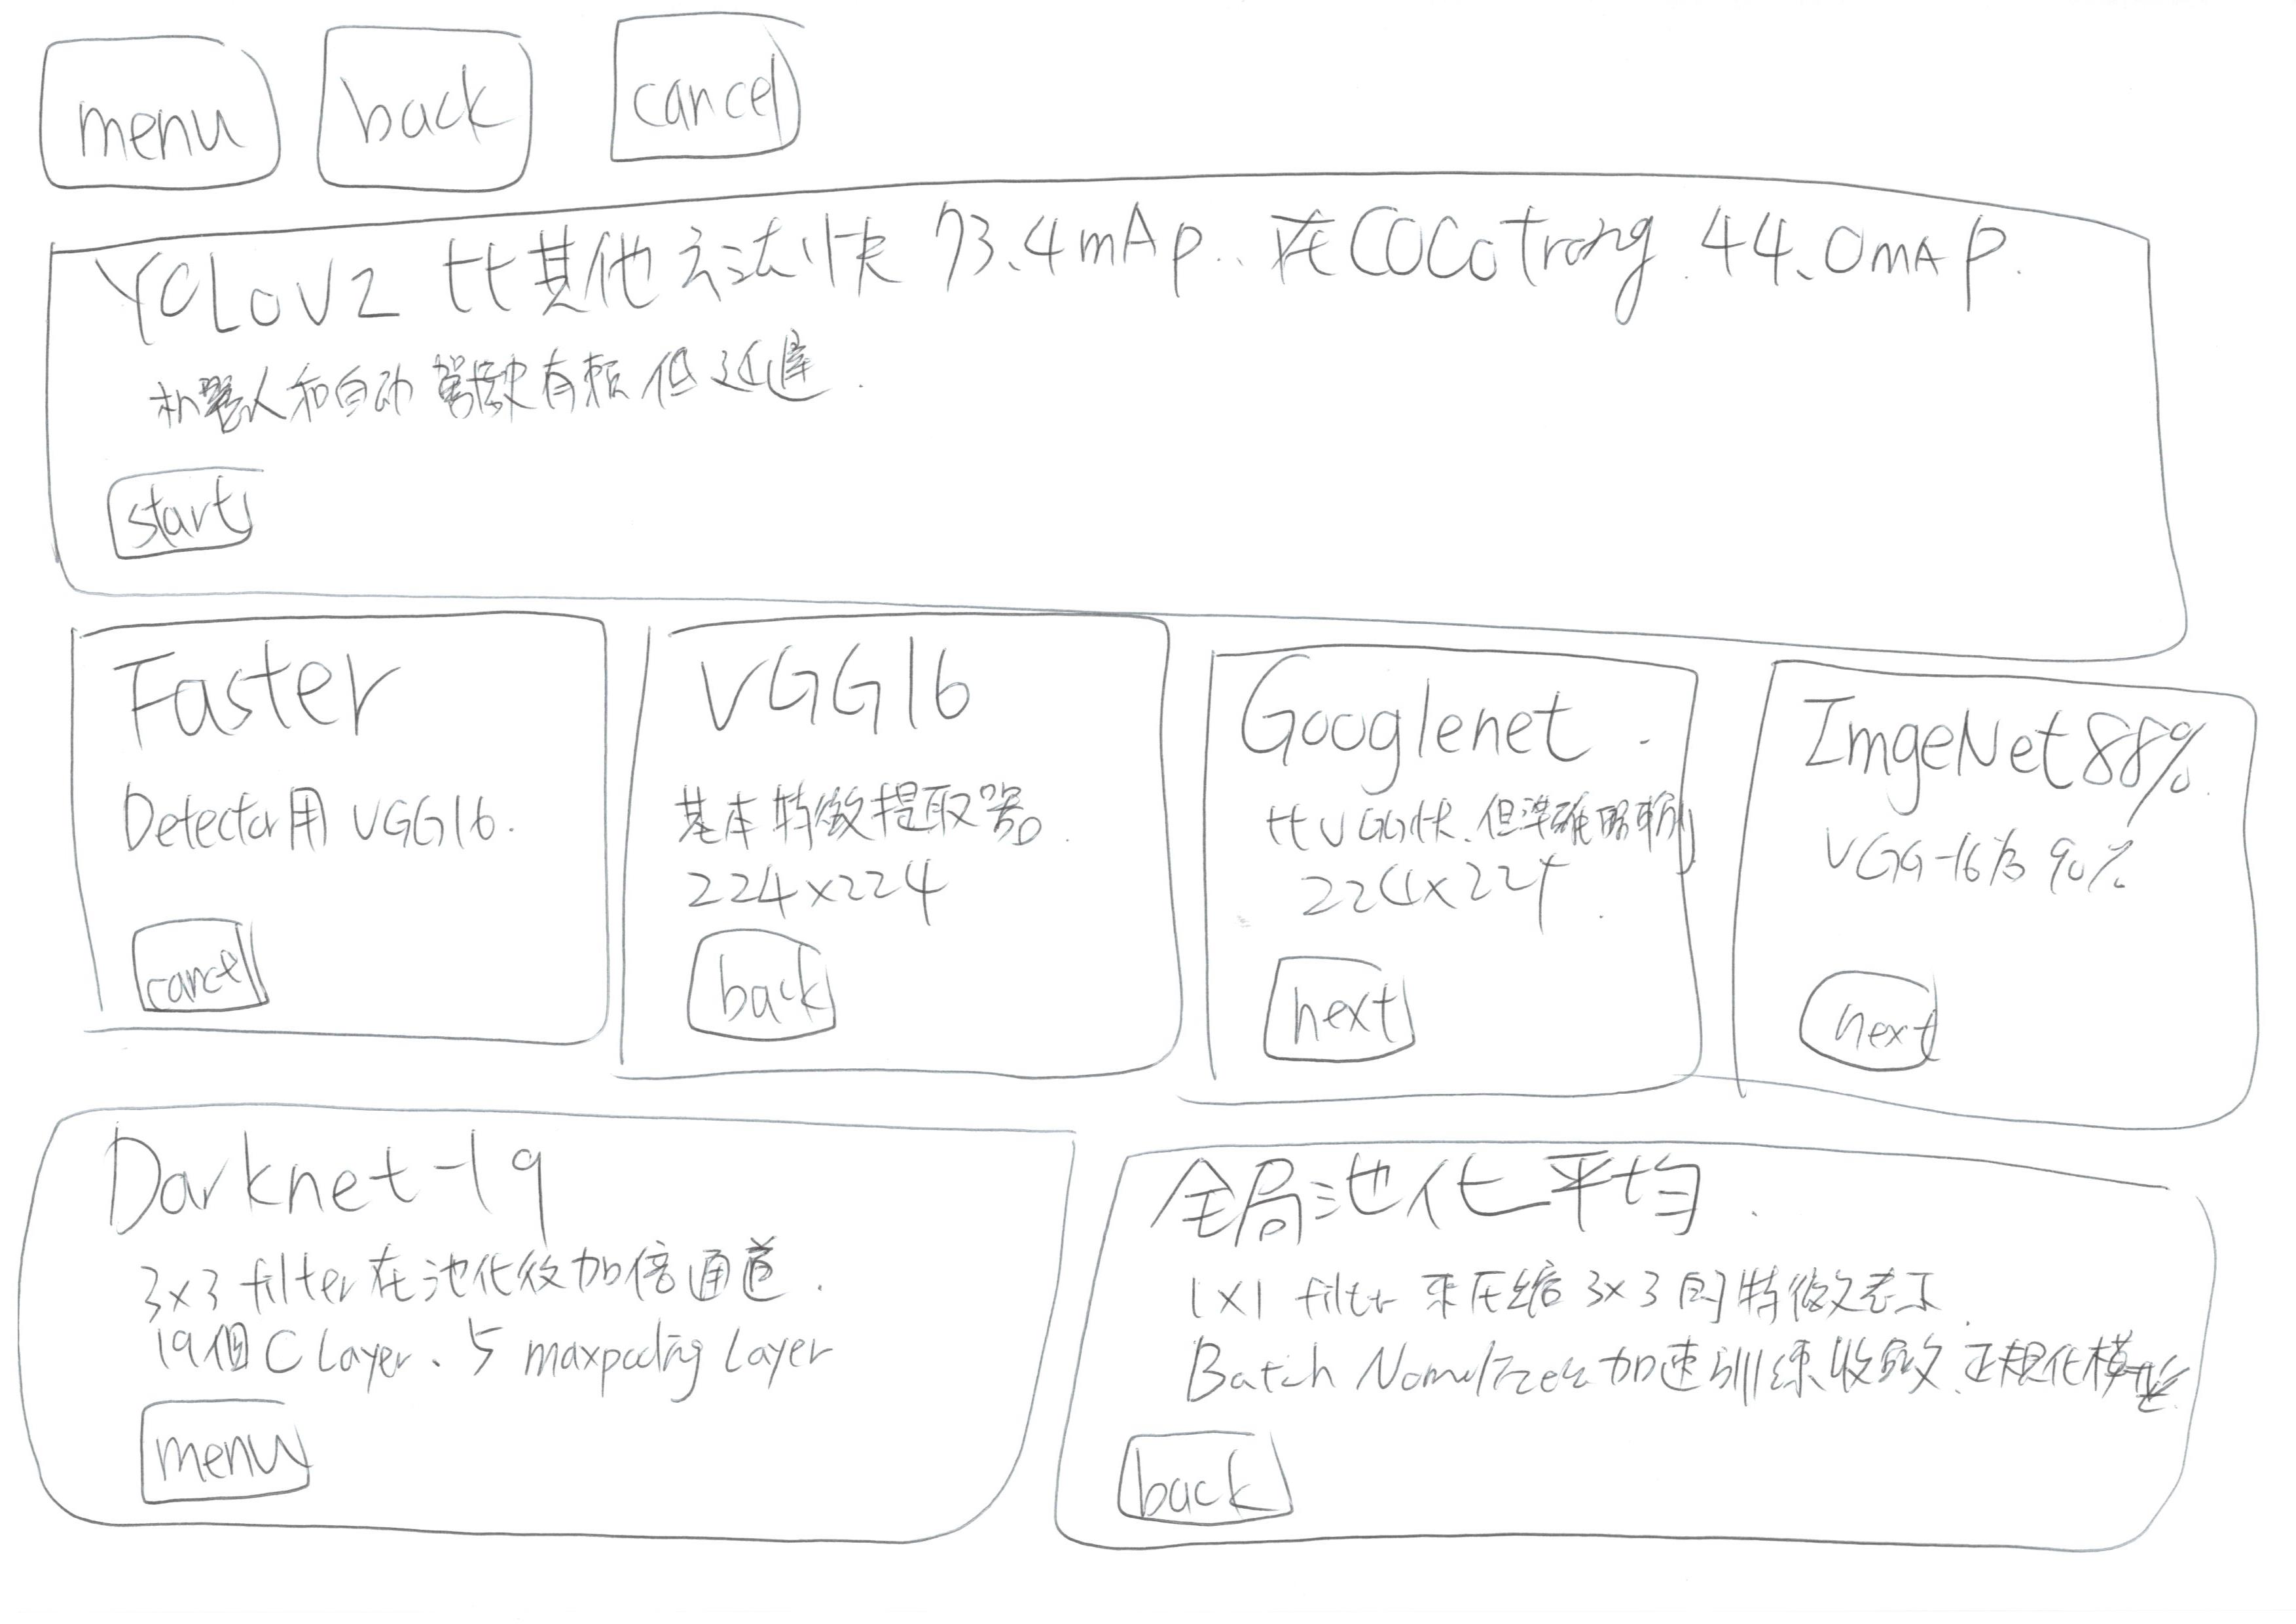 menu
back
cancel
YOLOv2 比其他方法快 73.4mAp. 在COCO 44.0mAP.
机器人和自动驾驶有赖低延迟.
start
Faster
Detector用 VGG16.
cancel
VGG16
基本特徵提取器.
224x224
back
Googlenet.
比VGG快、但準確略
224x224
next
ImgeNet 88%.
VGG-16为 90%
next
Darknet-19
3x3 filter在池化後加倍通道.
19個 C Layer、5 maxpooling Layer
menu
全局池化平均.
1x1 filter 来压缩 3x3 的特徵表示.
Batch 加速训练收敛、正規化模型.
back